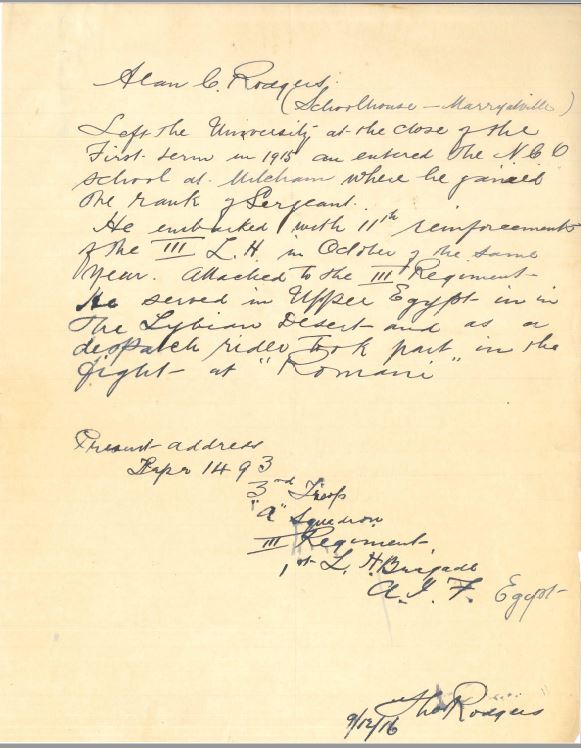 Alan C. Rodgers.
(Schoolhouse – Marryatville)
Left the University at the close of the
First term in 1915 an entered the N.C.O
school at Mitcham where he gained
the rank of Sergeant.
He embarked with 11th reinforcements
of the III L.H. in October of the same
year. Attached to the III Regiment
He served in Upper Egypt in in
the Lybian Desert and as a
despatch rider took part in the
fight at "Romani"
Present address
1493
3rd Troop
"A" Squadron
III Regiment
1st L. H. Brigade
A. I. F. Egypt
Rodgers
9/12/16